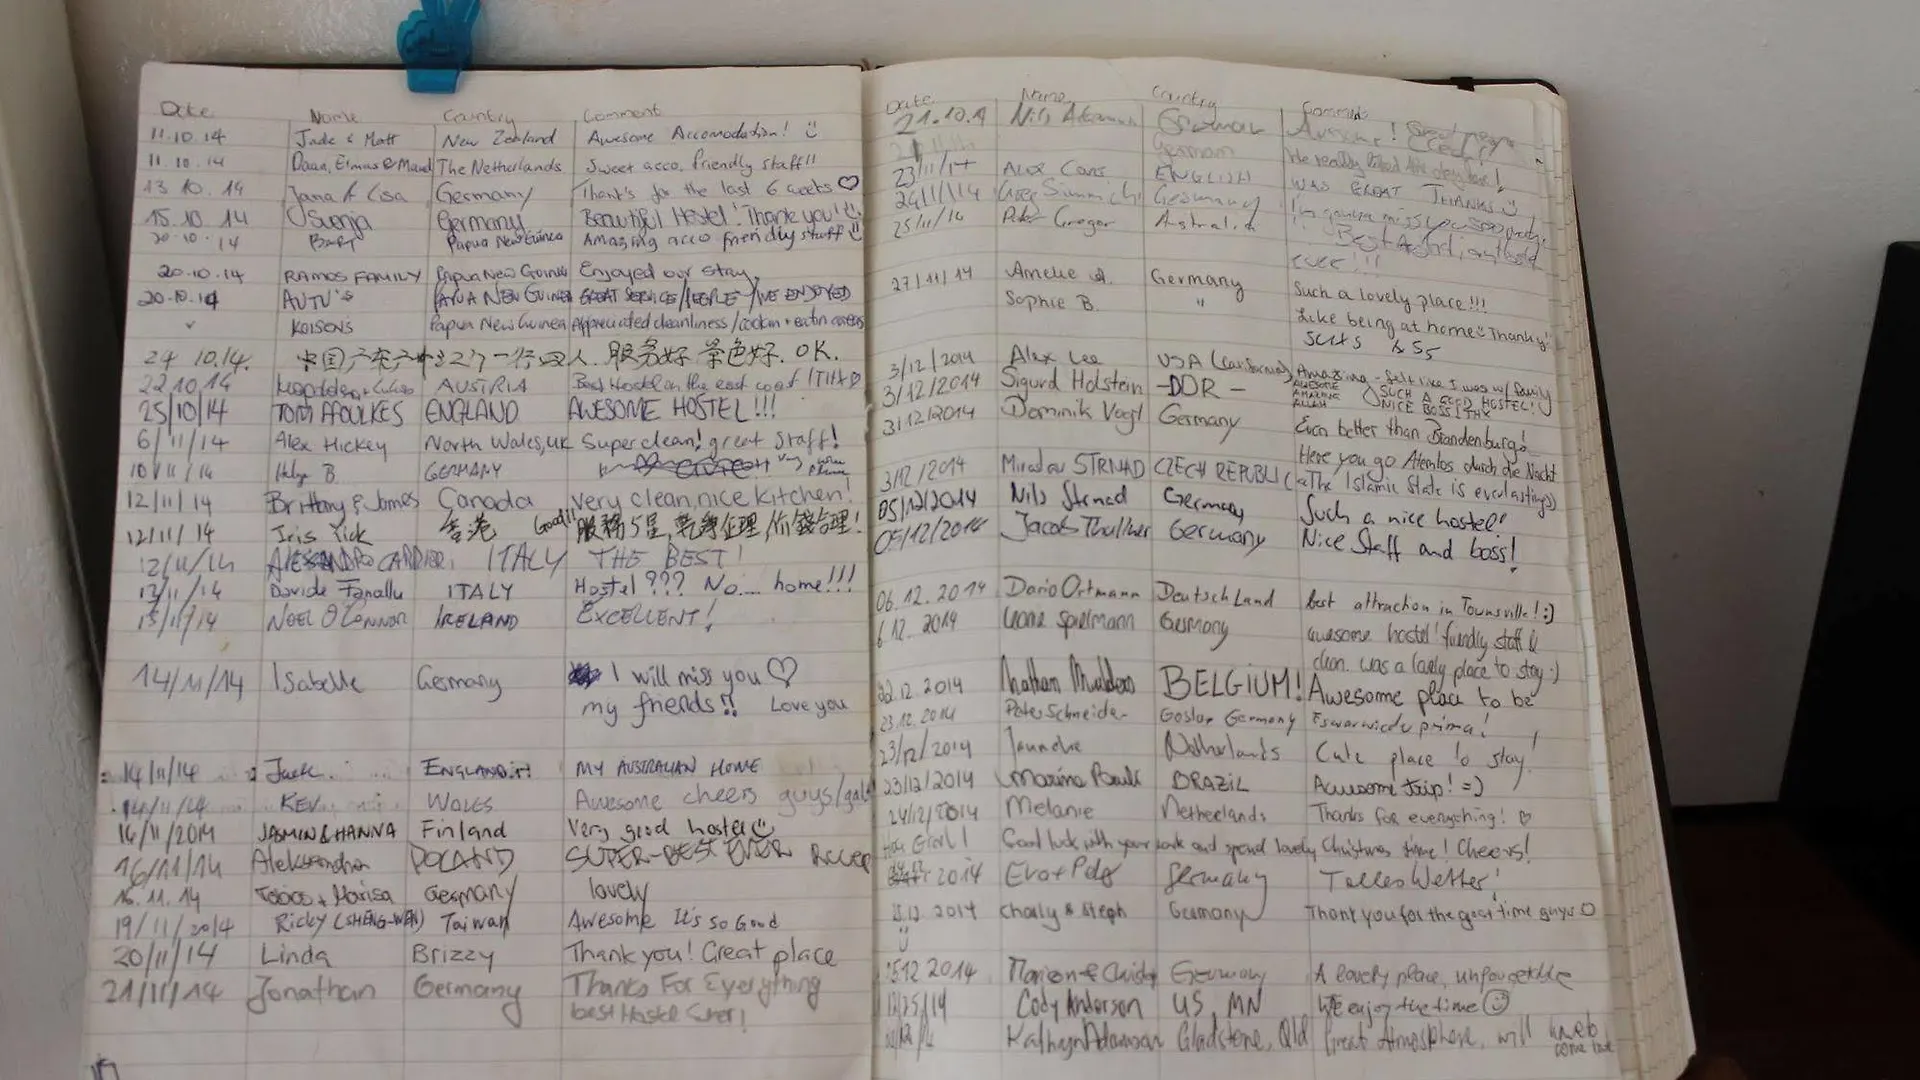 Date Name Country Comment
11.10.14 Jade & Matt New Zealand Awesome Accomodation!
11.10.14 The Netherlands Sweet acco, friendly staff!!
13 10. 14 Jana & Lisa Germany Thank's for the last 6 weeks ♡
15. 10. 14 Svenja Germany Beautiful Hostel! Thank you!
20.10.14 Papua New Guinea Amazing acco friendly stuff
20.10.14 RAMOS FAMILY Papua New Guinea Enjoyed our stay.
20.10.14 PAPUA NEW GUINEA GREAT SERVICE/PEOPLE/WE ENJOYED
Papua New Guinea Appreciated cleanliness/
24 10.14. 中国广东 一行四人. 服务好 景色好. OK.
22.10.14 AUSTRIA Best Hostel on the east coast!
25/10/14 TOM FFOULKES ENGLAND AWESOME HOSTEL!!!
6/11/14 Alex Hickey North Wales, UK Super clean! great staff!
10/11/14 Helge B. GERMANY
12/11/14 Brittany & James Canada Very clean, nice kitchen!
12/11/14 Iris Yick 香港 Good!! 服務5星, 乾淨企理, 价錢合理!
12/11/14 ITALY THE BEST!
13/11/14 Davide ITALY Hostel??? No.... home!!!
13/11/14 NOEL O'CONNOR IRELAND EXCELLENT!
14/11/14 Isabelle Germany I will miss you ♡
my friends!! Love you
14/11/14 Jack. ENGLAND MY AUSTRALIAN HOME
14/11/14 KEV WALES Awesome cheers guys/gals
16/11/2014 JASMIN & HANNA Finland Very good hostel
16/11/14 Aleksandra POLAND SUPER-BEST EVER
16.11.14 Germany lovely
19/11/2014 Ricky (SHENG-WEN) Taiwan Awesome It's so Good
20/11/14 Linda Brizzy Thank you! Great place
21/11/14 Jonathan Germany Thanks For Everything
best Hostel Ever!
Date Name Country Comments
21.10.1 Nils
German We really liked
23/11/14 Alex ENGLISH WAS GREAT THANKS
24/11/14 Germany I'm gonna miss you
25/11/14 Peter Gregor Australia Best
ever!!!
27/11/14 Amelie Germany Such a lovely place!!!
Sophie B. " Like being at home Thanks!
3/12/2014 Alex Lee USA Amazing - felt like I was w/ family
3/12/2014 Sigurd Holstein -DDR- AWESOME SUCH A GOOD HOSTEL!
AMAZING NICE BOSS! THX
ALLAH
3/12/2014 Dominik Vogl Germany Even better than Brandenburg!
Here you go Atemlos durch die Nacht
3/12/2014 Miroslav STRNAD CZECH REPUBLIC (The Islamic State is everlasting)
05/12/2014 Nils Germany Such a nice hostel!
05/12/2014 Jacob Germany Nice Staff and boss!
06.12.2014 Dario Ortmann Deutschland best attraction in Townsville! :)
6.12.2014 Spielmann Germany awesome hostel! friendly staff &
clean. was a lovely place to stay :)
22.12.2014 Nathan BELGIUM! Awesome place to be
23.12.2014 Peter Schneider Goslar Germany Es war wieder prima!
23/12/2014 Netherlands Cute place to stay!
23/12/2014 Marina BRAZIL Awesome trip! =)
24/12/2014 Melanie Netherlands Thanks for everything! ♡
Good luck with your work and spend lovely Christmas time! Cheers!
2014 Eva + Germany Tolles Wetter!
12.2014 Charly & Steph Germany Thank you for the great time guys
12 2014 Germany A lovely place, unforgettable
12/25/14 Cody Anderson US, MN We enjoy the time
Kathryn Adamson Gladstone, Qld Great Atmosphere, will